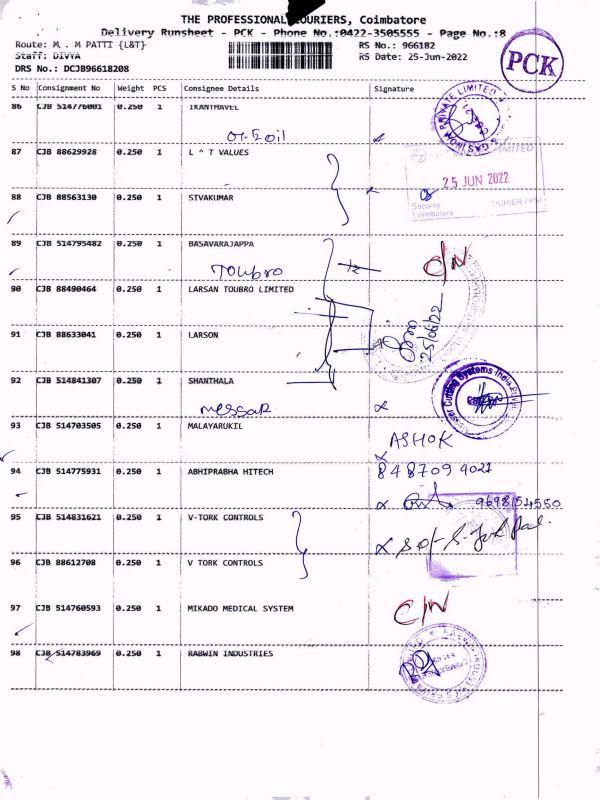 THE PROFESSIONAL COURIERS, Coimbatore
Delivery Runsheet - PCK - Phone No.:0422-3505555 - Page No.:8
Route: M. M PATTI {L&T}
RS No.: 966182
Staff: DIVYA
RS Date: 25-Jun-2022
DRS No.: DCJB96618208
PCK
S No Consignment No Weight PCS Consignee Details Signature
86 CJB 514776001 0.250 1 IKANTHAVEL
PRIVATE LIMITED
87 CJB 88629928 0.250 1 L ^ T VALUES
LIMITED
25 JUN 2022
88 CJB 88563130 0.250 1 SIVAKUMAR
Security
Coimbatore
89 CJB 514795482 0.250 1 BASAVARAJAPPA
Toubro
C/N
90 CJB 88490464 0.250 1 LARSAN TOUBRO LIMITED
25/06/22
91 CJB 88633041 0.250 1 LARSON
92 CJB 514841307 0.250 1 SHANTHALA
Messar
Cutting Systems India
93 CJB 514703505 0.250 1 MALAYARUKIL
ASHOK
94 CJB 514775931 0.250 1 ABHIPRABHA HITECH
848709 4021
9698154550
95 CJB 514831621 0.250 1 V-TORK CONTROLS
96 CJB 88612708 0.250 1 V TORK CONTROLS
97 CJB 514760593 0.250 1 MIKADO MEDICAL SYSTEM
C/N
98 CJB 514783969 0.250 1 RABWIN INDUSTRIES